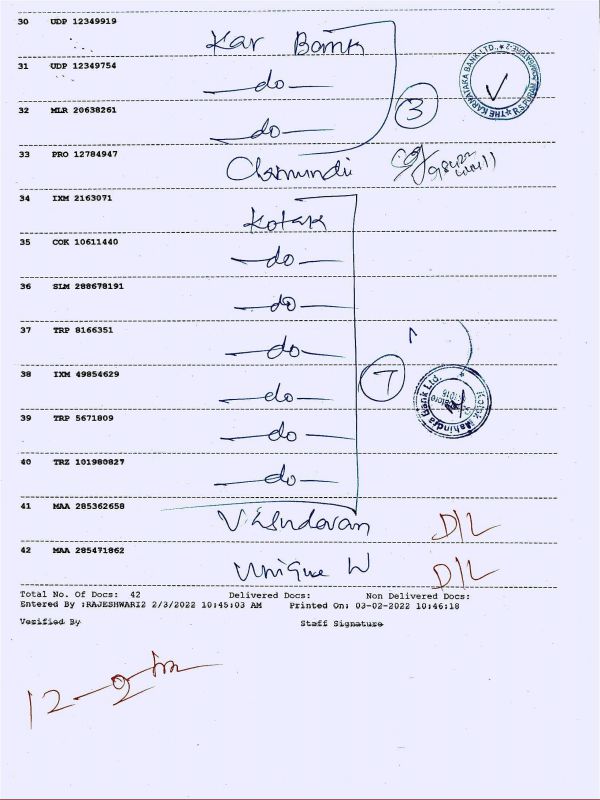 30 UDP 12349919
Kar Bank
31 UDP 12349754
—do—
THE KARNATAKA BANK LTD.,
32 MLR 20638261
3
—do—
33 PRO 12784947
Chamundi
34 IXM 2163071
Kotak
35 COK 10611440
—do—
36 SLM 288678191
—do—
37 TRP 8166351
—do—
38 IXM 49854629
7
Kotak Mahindra Bank Ltd.
—do—
39 TRP 5671809
—do—
40 TRZ 101980827
—do—
41 MAA 285362658
D/L
42 MAA 285471862
Unique W D/L
Total No. Of Docs: 42 Delivered Docs: Non Delivered Docs:
Entered By :RAJESHWARI2 2/3/2022 10:45:03 AM Printed On: 03-02-2022 10:46:18
Verified By Staff Signature